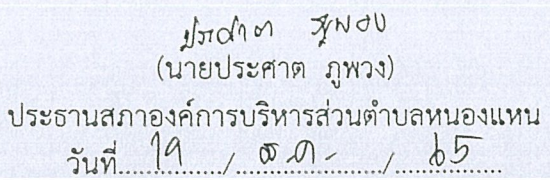 ประศาต ภูพวง
(นายประศาต ภูพวง)
ประธานสภาองค์การบริหารส่วนตำบลหนองแหน
วันที่ 19 / ธ.ค. / 65